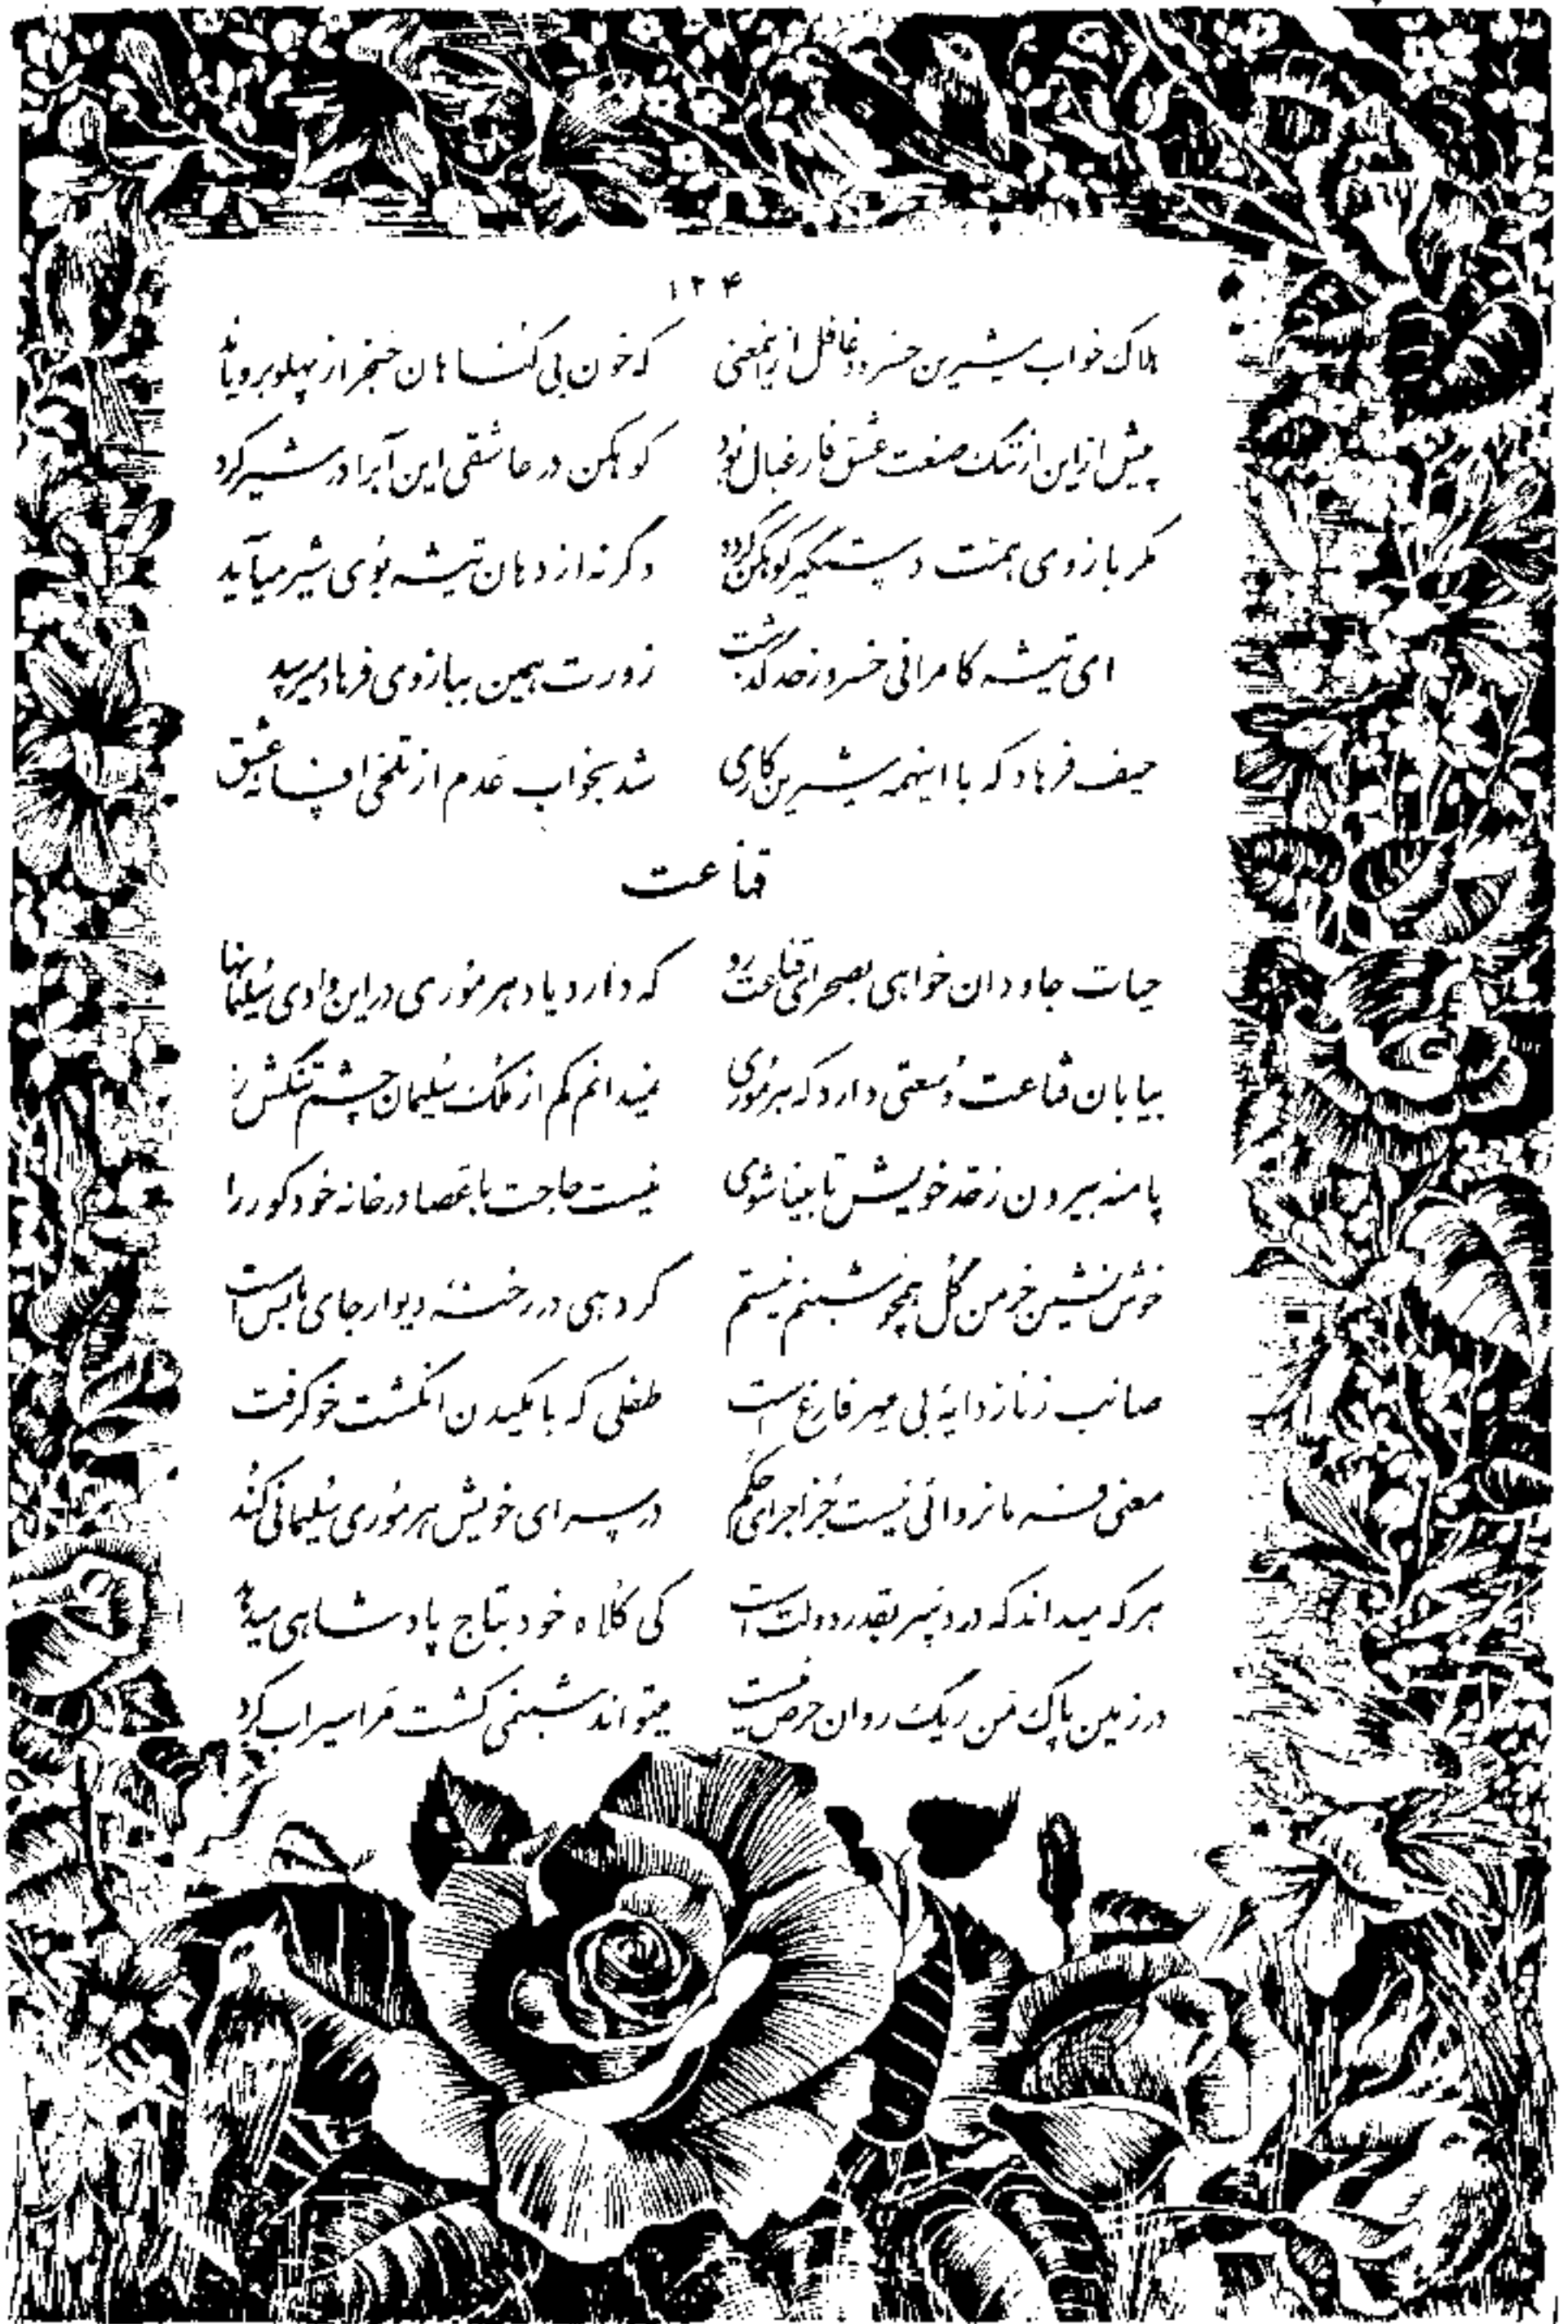 ۱۲۴
هلاک خواب شیرین خسرو و غافل از این معنی که خون بی گناهان خنجر از پهلو برویاند
پیش از این از ننگ صنعت عشق فارغبال بود کوهکن در عاشقی این آب را در شیر کرد
مگر بازوی همت دستگیر کوهکن گردد وگرنه از دهان تیشه بوی شیر میآید
ای تیشه کامرانی خسرو ز حد گذشت زورت همین ببازوی فرهاد میرسد
حیف فرهاد که با اینهمه شیرین کاری شد بخواب عدم از تلخی افسانه عشق
قناعت
حیات جاودان خواهی بصحرای قناعت رو که دارد یاد هر موری در این وادی سلیمانها
بیابان قناعت وسعتی دارد که هر موری نمیداند کم از ملک سلیمان چشم تنگش را
پا منه بیرون ز حد خویش تا بینا شوی نیست حاجت با عصا در خانه خود کور را
خوش نشین خرمن گل همچو شبنم نیستم گر دهی در رخنه دیوار جای ما بس است
صائب ز ناز دایه بی مهر فارغ است طفلی که با مکیدن انگشت خو گرفت
معنی فرمانروائی نیست جز اجرای حکم در سرای خویش هر موری سلیمانی کند
هر که میداند که درد سر بقدر دولت است کی کلاه خود بتاج پادشاهی میدهد
در زمین پاک من ریگ روان حرص نیست میتواند شبنمی کشت مرا سیراب کرد